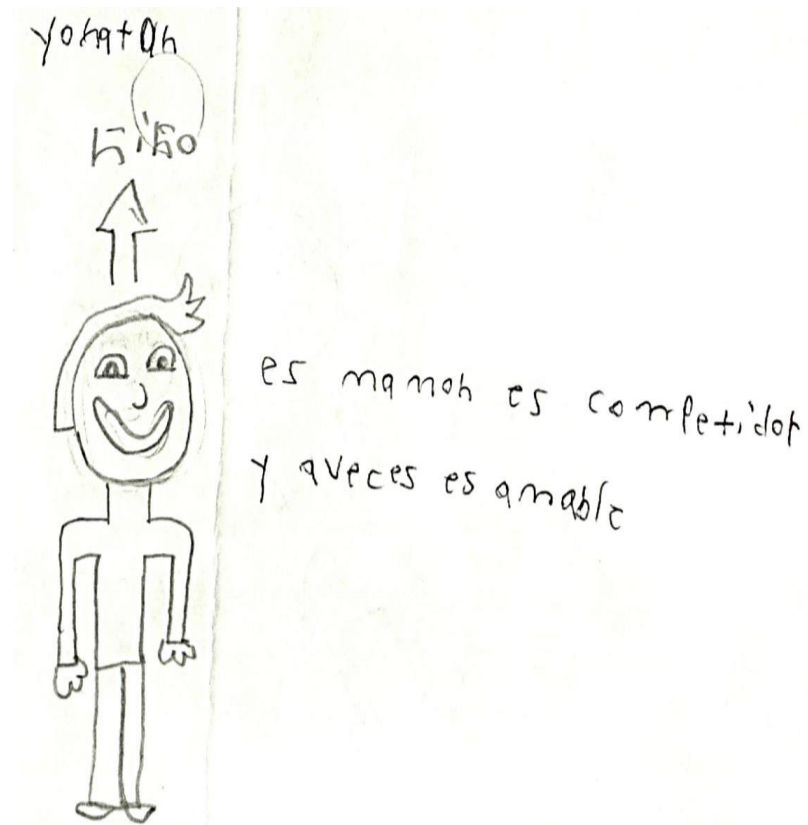 yonatan
niño
es mamon es competidor
y aveces es amable